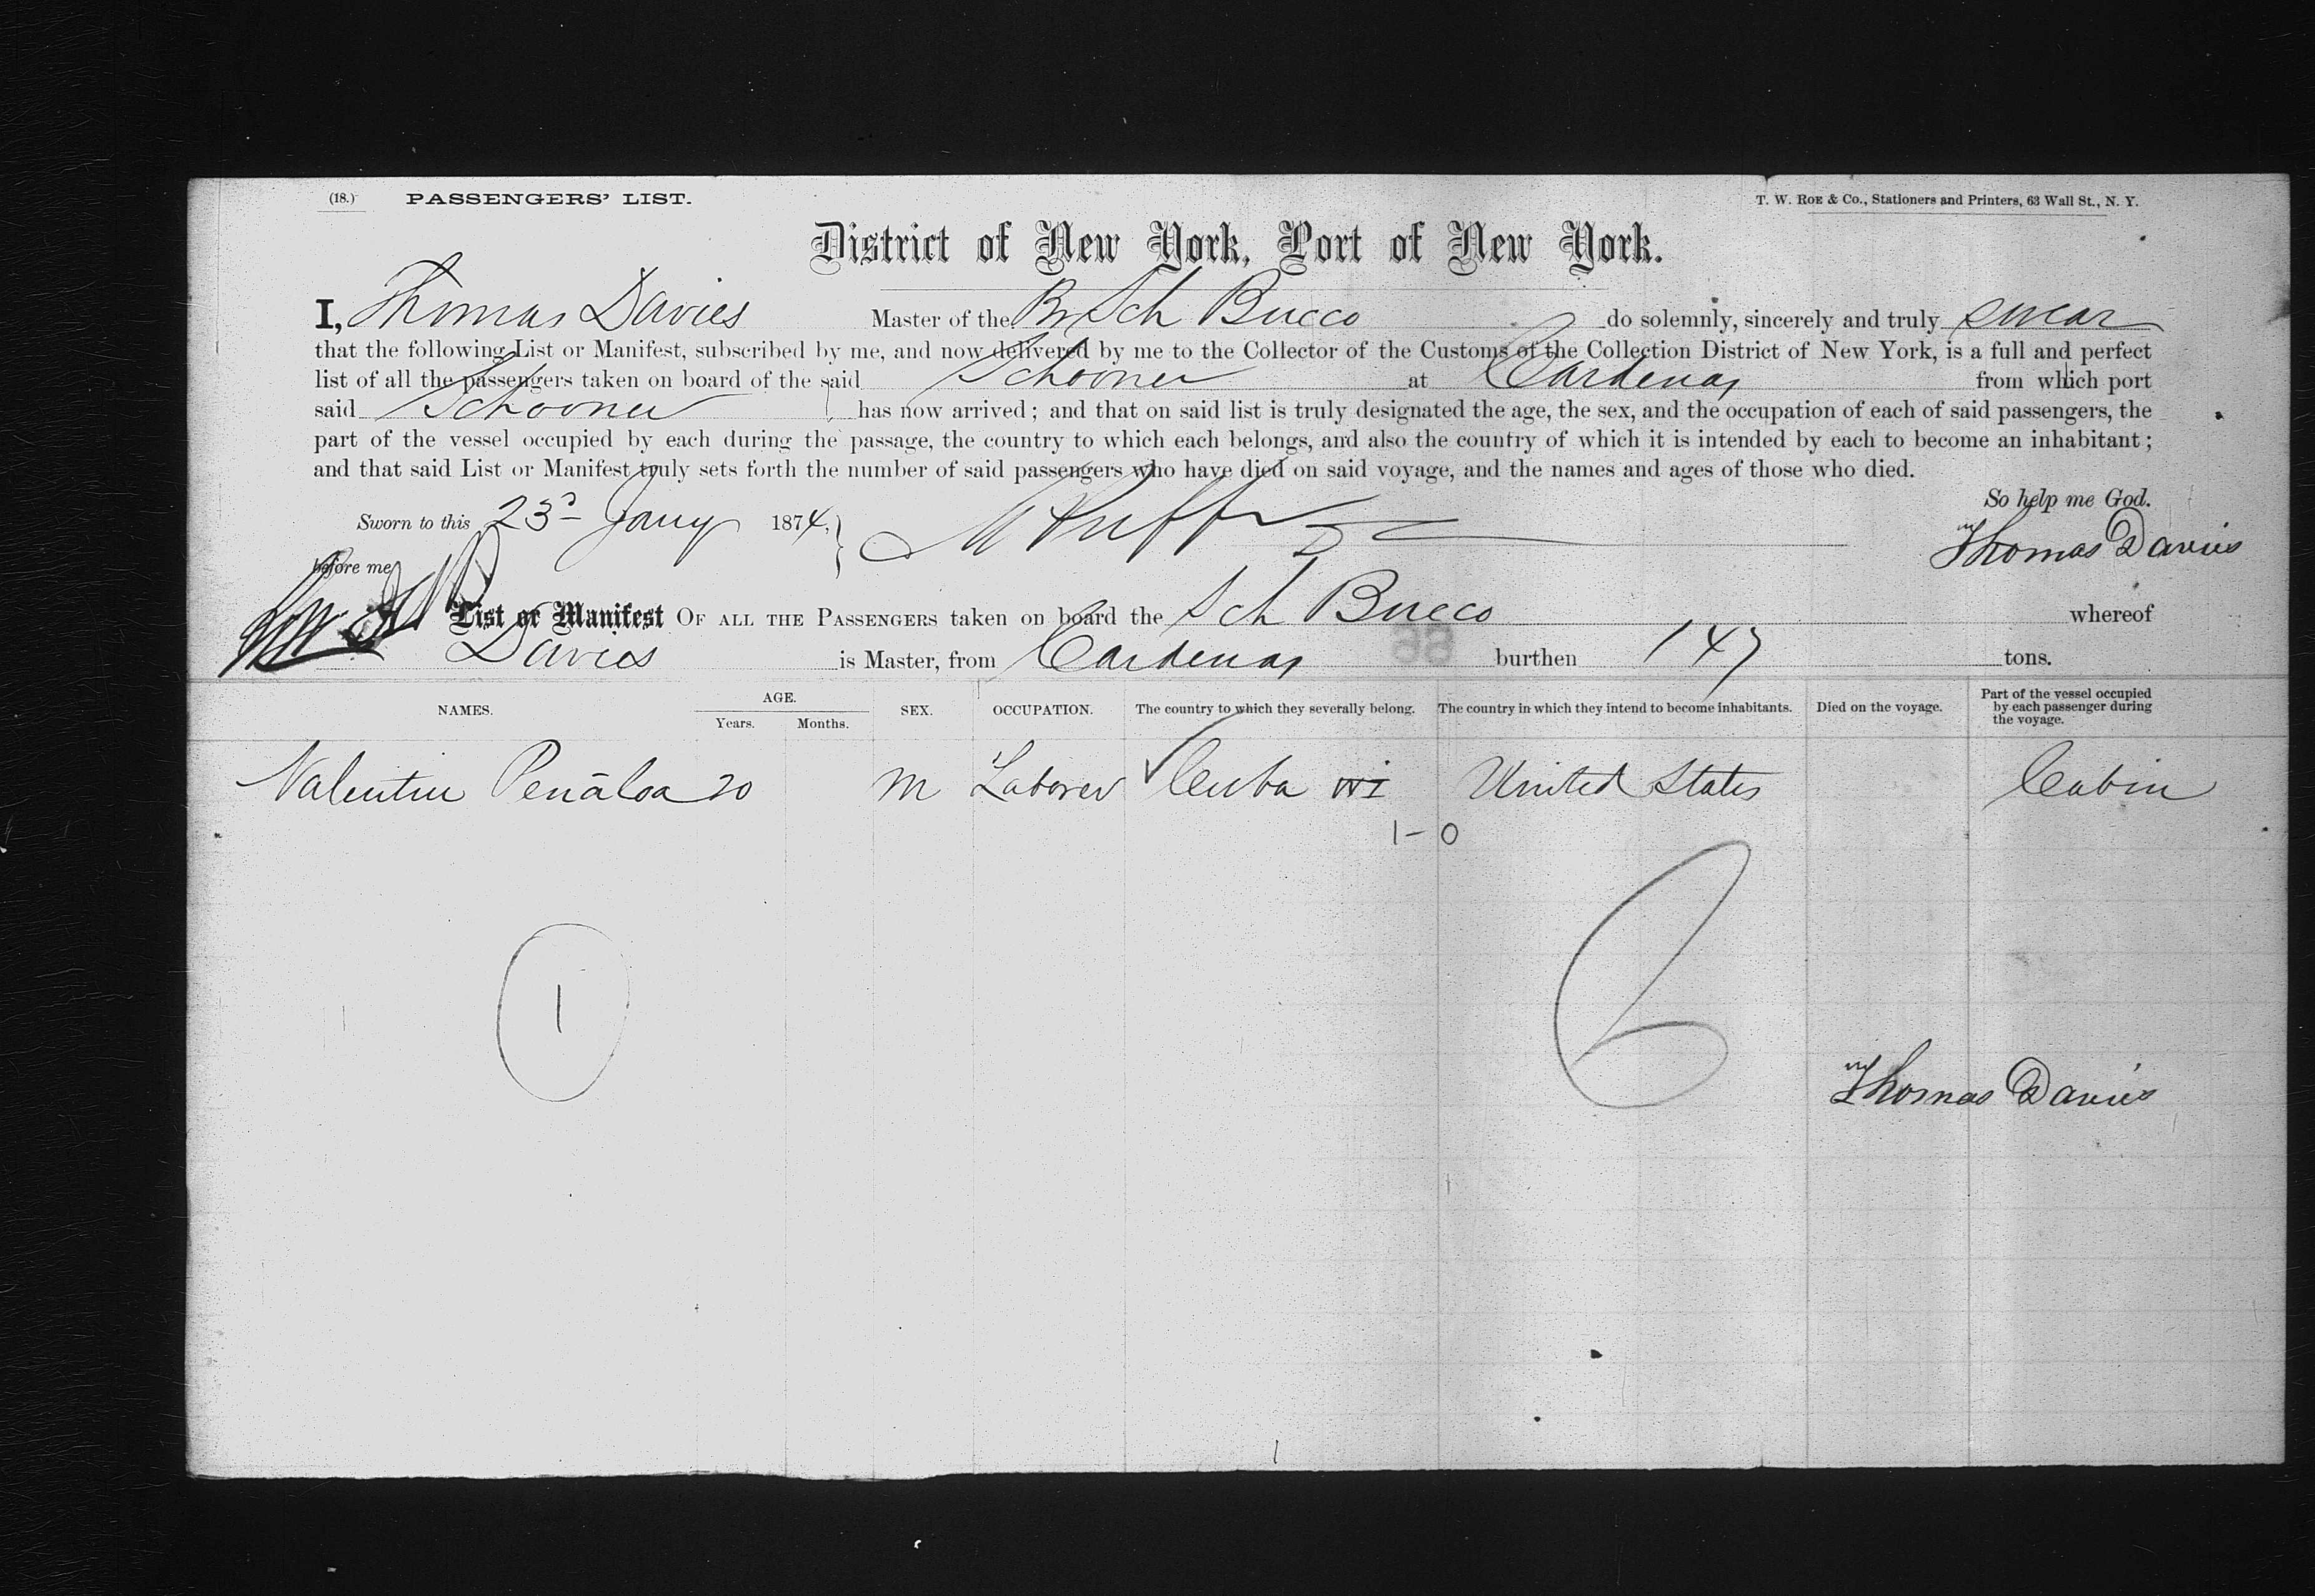 (18.) PASSENGERS' LIST. T. W. ROE & Co., Stationers and Printers, 63 Wall St., N. Y.
District of New York, Port of New York.
I, Thomas Davies Master of the Br Sch Bucco do solemnly, sincerely and truly swear
that the following List or Manifest, subscribed by me, and now delivered by me to the Collector of the Customs of the Collection District of New York, is a full and perfect
list of all the passengers taken on board of the said Schooner at Cardenas from which port
said Schooner has now arrived; and that on said list is truly designated the age, the sex, and the occupation of each of said passengers, the
part of the vessel occupied by each during the passage, the country to which each belongs, and also the country of which it is intended by each to become an inhabitant;
and that said List or Manifest truly sets forth the number of said passengers who have died on said voyage, and the names and ages of those who died.
So help me God.
Sworn to this 23d Jany 1874, Thomas Davies
before me
List or Manifest OF ALL THE PASSENGERS taken on board the Sch Bucco whereof
Davies is Master, from Cardenas burthen 147 tons.
NAMES. AGE. Years. Months. SEX. OCCUPATION. The country to which they severally belong. The country in which they intend to become inhabitants. Died on the voyage. Part of the vessel occupied by each passenger during the voyage.
Valentin Peñaloa 20 M Laborer Cuba WI United States Cabin
1-0
1
6
Thomas Davies